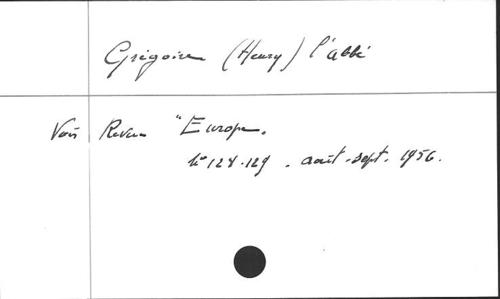 Grégoire (Henry) l'abbé
Voir Revue "Europe.
N° 128-129. août-sept. 1956.